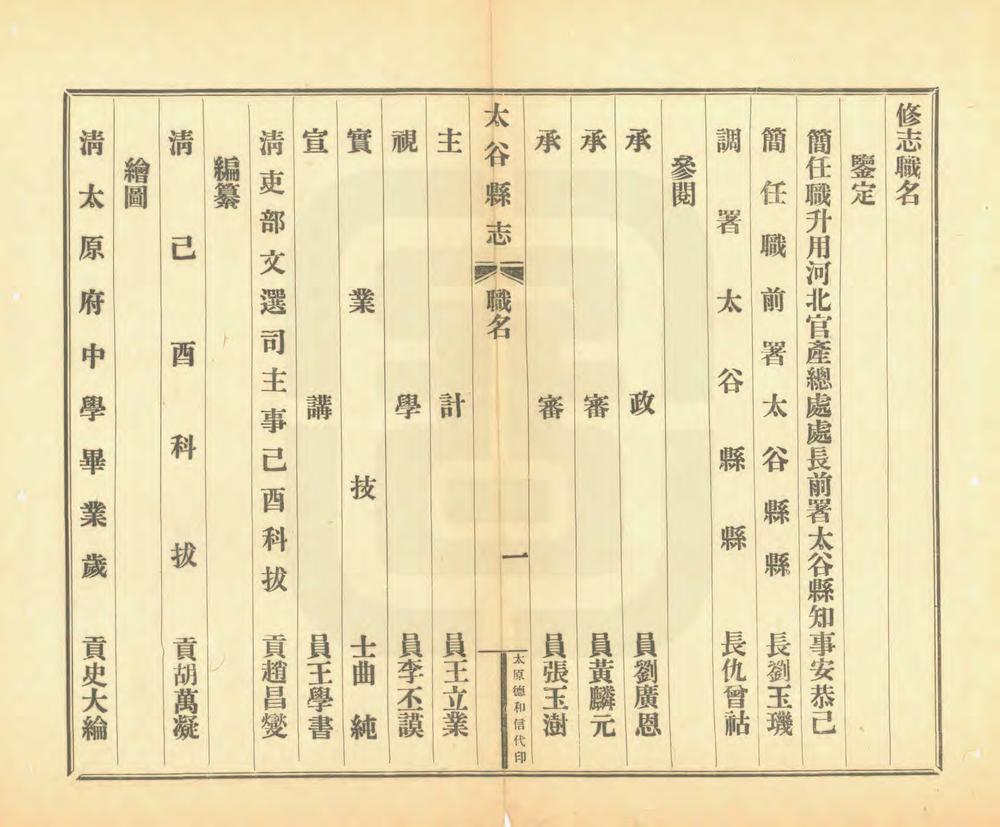 修志職名
鑒定
簡任職升用河北官產總處處長前署太谷縣知事安恭己
簡任職前署太谷縣縣長劉玉璣
調署太谷縣縣長仇曾祜
參閱
承政員劉廣恩
承審員黃麟元
承審員張玉澍
太谷縣志 職名 一 太原德和信代印
主計員王立業
視學員李丕謨
實業技士曲純
宣講員王學書
清吏部文選司主事己酉科拔貢趙昌燮
編纂
清己酉科拔貢胡萬凝
繪圖
清太原府中學畢業歲貢史大綸